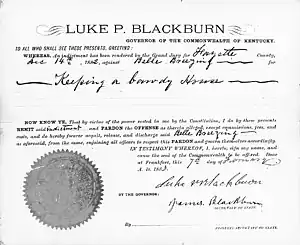 LUKE P. BLACKBURN
GOVERNOR OF THE COMMONWEALTH OF KENTUCKY.
TO ALL WHO SHALL SEE THESE PRESENTS, GREETING:
WHEREAS, An indictment has been rendered by the Grand Jury for Fayette County,
Dec 14th 1882, against Belle Brezing for
Keeping a bawdy House
NOW KNOW YE, That by virtue of the power vested in me by the Constitution, I do by these presents
REMIT said Indictment and PARDON the OFFENSE as therein alleged,
and, do and hereby forever acquit, release, and discharge the said Belle Brezing
as aforesaid, from the same, enjoining all officers to respect this PARDON and govern themselves accordingly.
IN TESTIMONY WHEREOF, I, hereby, sign my name, and
cause the seal of the Commonwealth to be affixed. Done
at Frankfort, this day of January
A. D. 1883.
Luke P Blackburn
BY THE GOVERNOR:
James Blackburn
SECRETARY OF STATE.
By
ASSISTANT SECRETARY OF STATE.